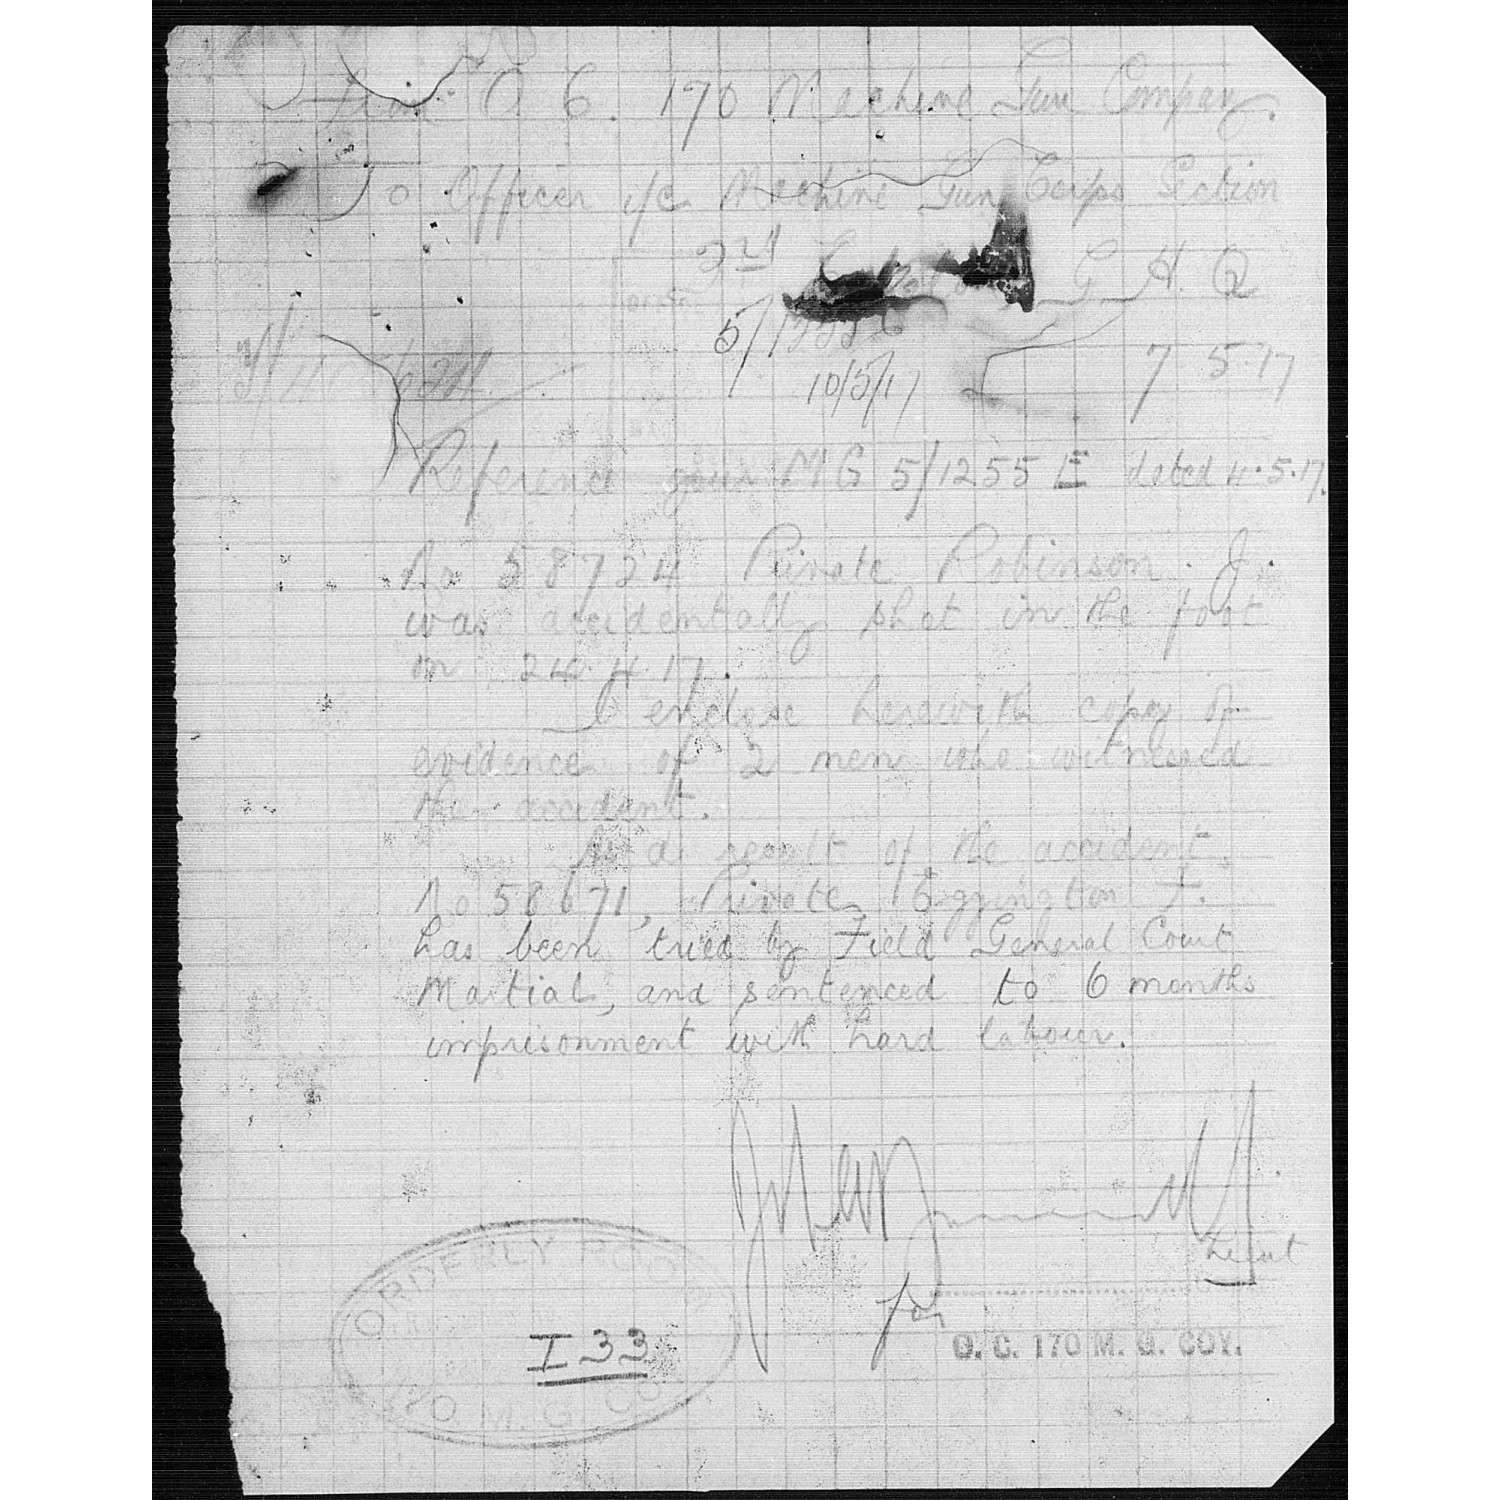 From O.C. 170 Machine Gun Company.
To Officer i/c Machine Gun Corps Section
3rd Echelon G.H.Q
5/1255 E
10/5/17
7 5.17
Reference your MG 5/1255 E dated 4.5.17.
No 58724 Private Robinson. J.
was accidentally shot in the foot
on 24.4.17.
I enclose herewith copy of
evidence of 2 men who witnessed
the accident.
As a result of the accident,
No 58671, Private, Eggington F.
has been tried by Field General Court
Martial, and sentenced to 6 months
imprisonment with hard labour.
Lieut
for
O. C. 170 M. G. COY.
ORDERLY ROOM
I 33
170 M. G. COY